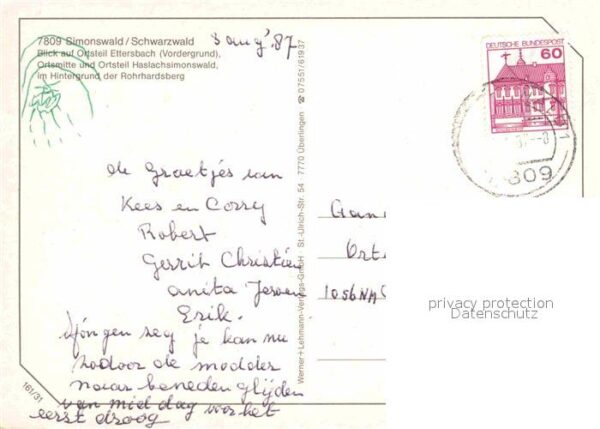 7809 Simonswald / Schwarzwald
Blick auf Ortsteil Ettersbach (Vordergrund),
Ortsmitte und Ortsteil Haslachsimonswald,
im Hintergrund der Rohrhardsberg
3 aug '87
de Groetjes van
Kees en Corry
Robert
Gerrit Christien
anita Jeroen
Erik.
Jongen zeg je kan nu
zo door de modder
naar beneden glijden
van middag voor het
eerst droog
161/31
Werner+Lehmann-Verlags-GmbH · St.-Ulrich-Str. 54 · 7770 Überlingen ☎ 07551/61937
DEUTSCHE BUNDESPOST
60
809
Aan
1056NM
privacy protection
Datenschutz